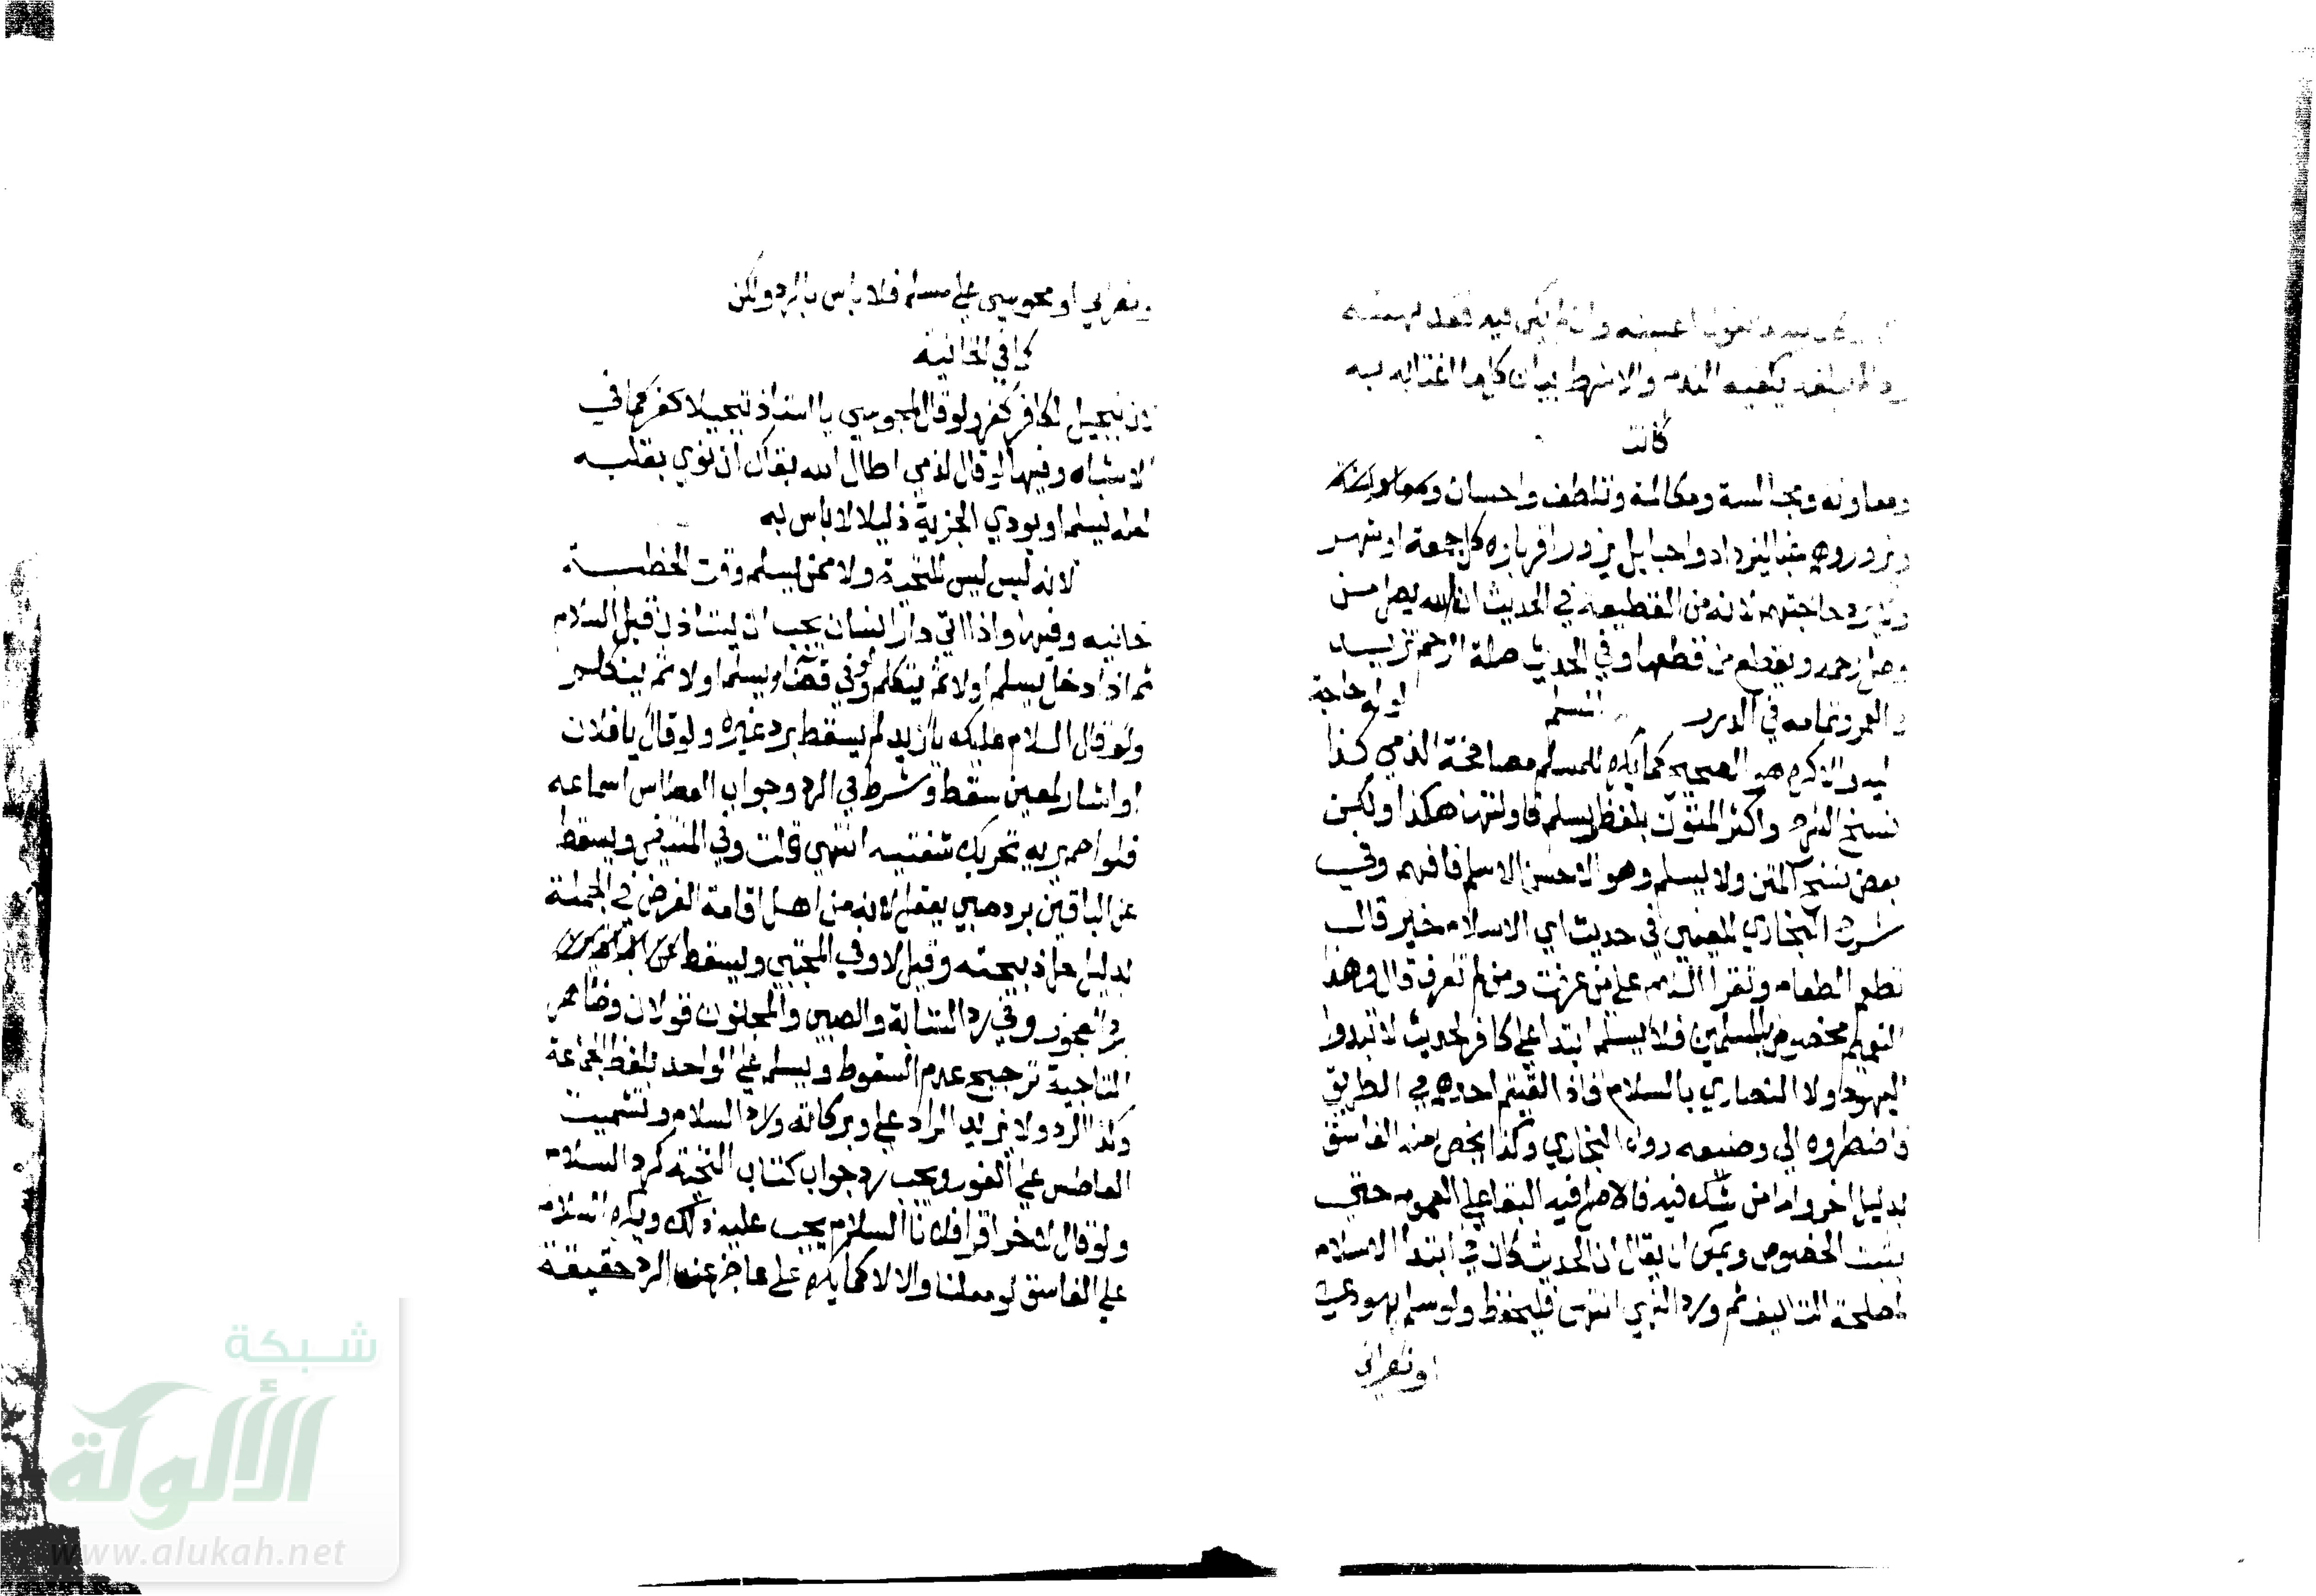 وان لم يكن فيه فقد بهته
يكفيه الندم والا شرط بيان كل ما اغتابه به
كانت
ومعاونة ومجالسة ومكالمة وتلطف واحسان
ويزورهم غبا ليزداد حبا بل يزور اقرباءه كل جمعة او شهر
ولا يرد حاجتهم لانه من القطيعة في الحديث ان الله يصل من
وصل رحمه ويقطع من قطعها وفي الحديث صلة الرحم تزيد
في العمر وتمامه في الدرر المسلم لو له حاجة
اليه والا كره هو الصحيح كما يكره للمسلم مصافحة الذمي كذا
نسخ الشرح واكثر المتون بلفظ ويسلم فاولتها هكذا ولكن
بعض نسخ المتن ولا يسلم وهو الاحسن الاسلم فافهم وفي
شرح البخاري للعيني في حديث اي الاسلام خير قال
تطعم الطعام وتقرا السلام على من عرفت ومن لم تعرف قال وهذا
التعميم مخصوص بالمسلمين فلا يسلم ابتدا على كافر لحديث لا تبدوا
اليهود ولا النصاري بالسلام فاذا لقيتم احدهم في الطريق
فاضطروه الي وضيعه رواه البخاري وكذا يخص منه الفاسق
بدليل اخر واما من شك فيه فالاصل فيه البقا علي العموم حتى
يثبت الخصوص ويمكن ان يقال ان الحديث كان في ابتدا الاسلام
لمصلحة التاليف ثم ورد النهي انتهى فليحفظ ولو سلم يهودي
او نصراني
او نصراني او مجوسي علي مسلم فلا باس بالرد ولكن
كما في الخانية
لان تبجيل الكافر كفر ولو قال لمجوسي يا استاذ تبجيلا كفر كما في
الاشباه وفيها لو قال لذمي اطال الله بقاك ان نوي بقلبه
لعله يسلم او يودي الجزية ذليلا لا باس به
لانه ليس للتحية ولا ممن يسلم وقت الخطبة
خانيه وفيها واذا اتي دار انسان يجب ان يستاذن قبل السلام
ثم اذا دخل يسلم اولا ثم يتكلم ولو في فضاء يسلم اولا ثم يتكلم
ولو قال السلام عليك يا زيد لم يسقط برد غيره ولو قال يا فلان
او اشار لمعين سقط وشرط في الرد وجواب العطاس اسماعه
فلو اصم يريه تحريك شفتيه انتهى قلت وفي المبتغى ويسقط
عن الباقين برد صبي يعقل لانه من اهل اقامة الفرض في الجملة
بدليل حل ذبيحته وقيل لا وفي المجتبي ويسقط
برد العجوز وفي رد الشابة والصبي والمجنون قولان وظاهر
التاجية ترجيح عدم السقوط ويسلم علي الواحد بلفظ الجماعة
وكذا الرد ولا يزيد الراد علي وبركاته ورد السلام وتشميت
العاطس علي الفور ويجب رد جواب كتاب التحية كرد السلام
ولو قال لاخر اقرا فلانا السلام يجب عليه ذلك ويكره السلام
علي الفاسق لو معلنا والا لا كما يكره على عاجز عن الرد حقيقة
شبكة
الألوكة
www.alukah.net